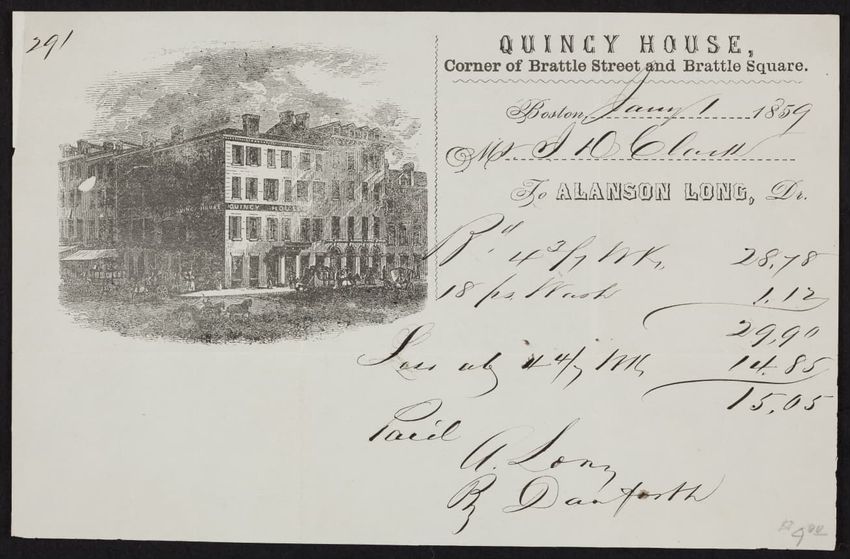 291
QUINCY HOUSE,
Corner of Brattle Street and Brattle Square.
Boston, Jany 1 1859
Mr. I D Clark
To ALANSON LONG, Dr.
QUINCY HOUSE
QUINCY HOUSE
B.d 4 3/7 Wk, 28,78
18 ps Wash 1,12
29,90
Less ab 4 4/7 Wk 14.85
15,05
Paid
A. Long
By Danforth